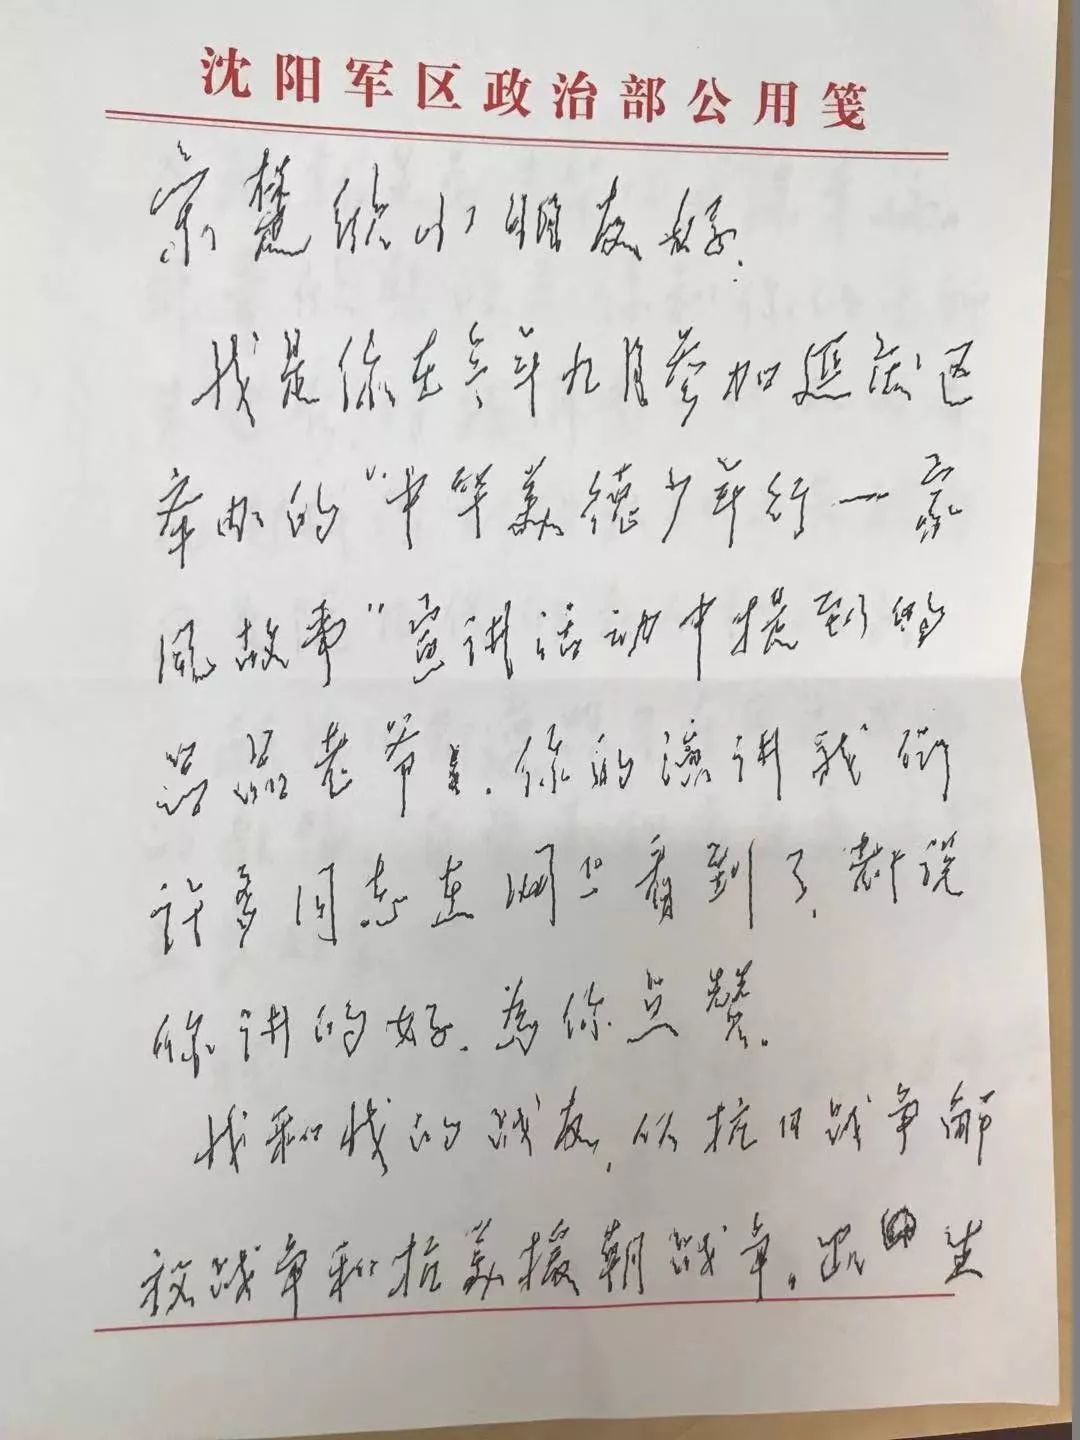 沈阳军区政治部公用笺
宗楚欣小朋友好.
我是你在今年九月参加延庆区
举办的“中华美德少年行一家
风故事”宣讲活动中提到的
品老爷爷.你的演讲我们
许多同志在网上看到了.都说
你讲的好.为你点赞.
我和我的战友,从抗日战争解
放战争和抗美援朝战争。出生